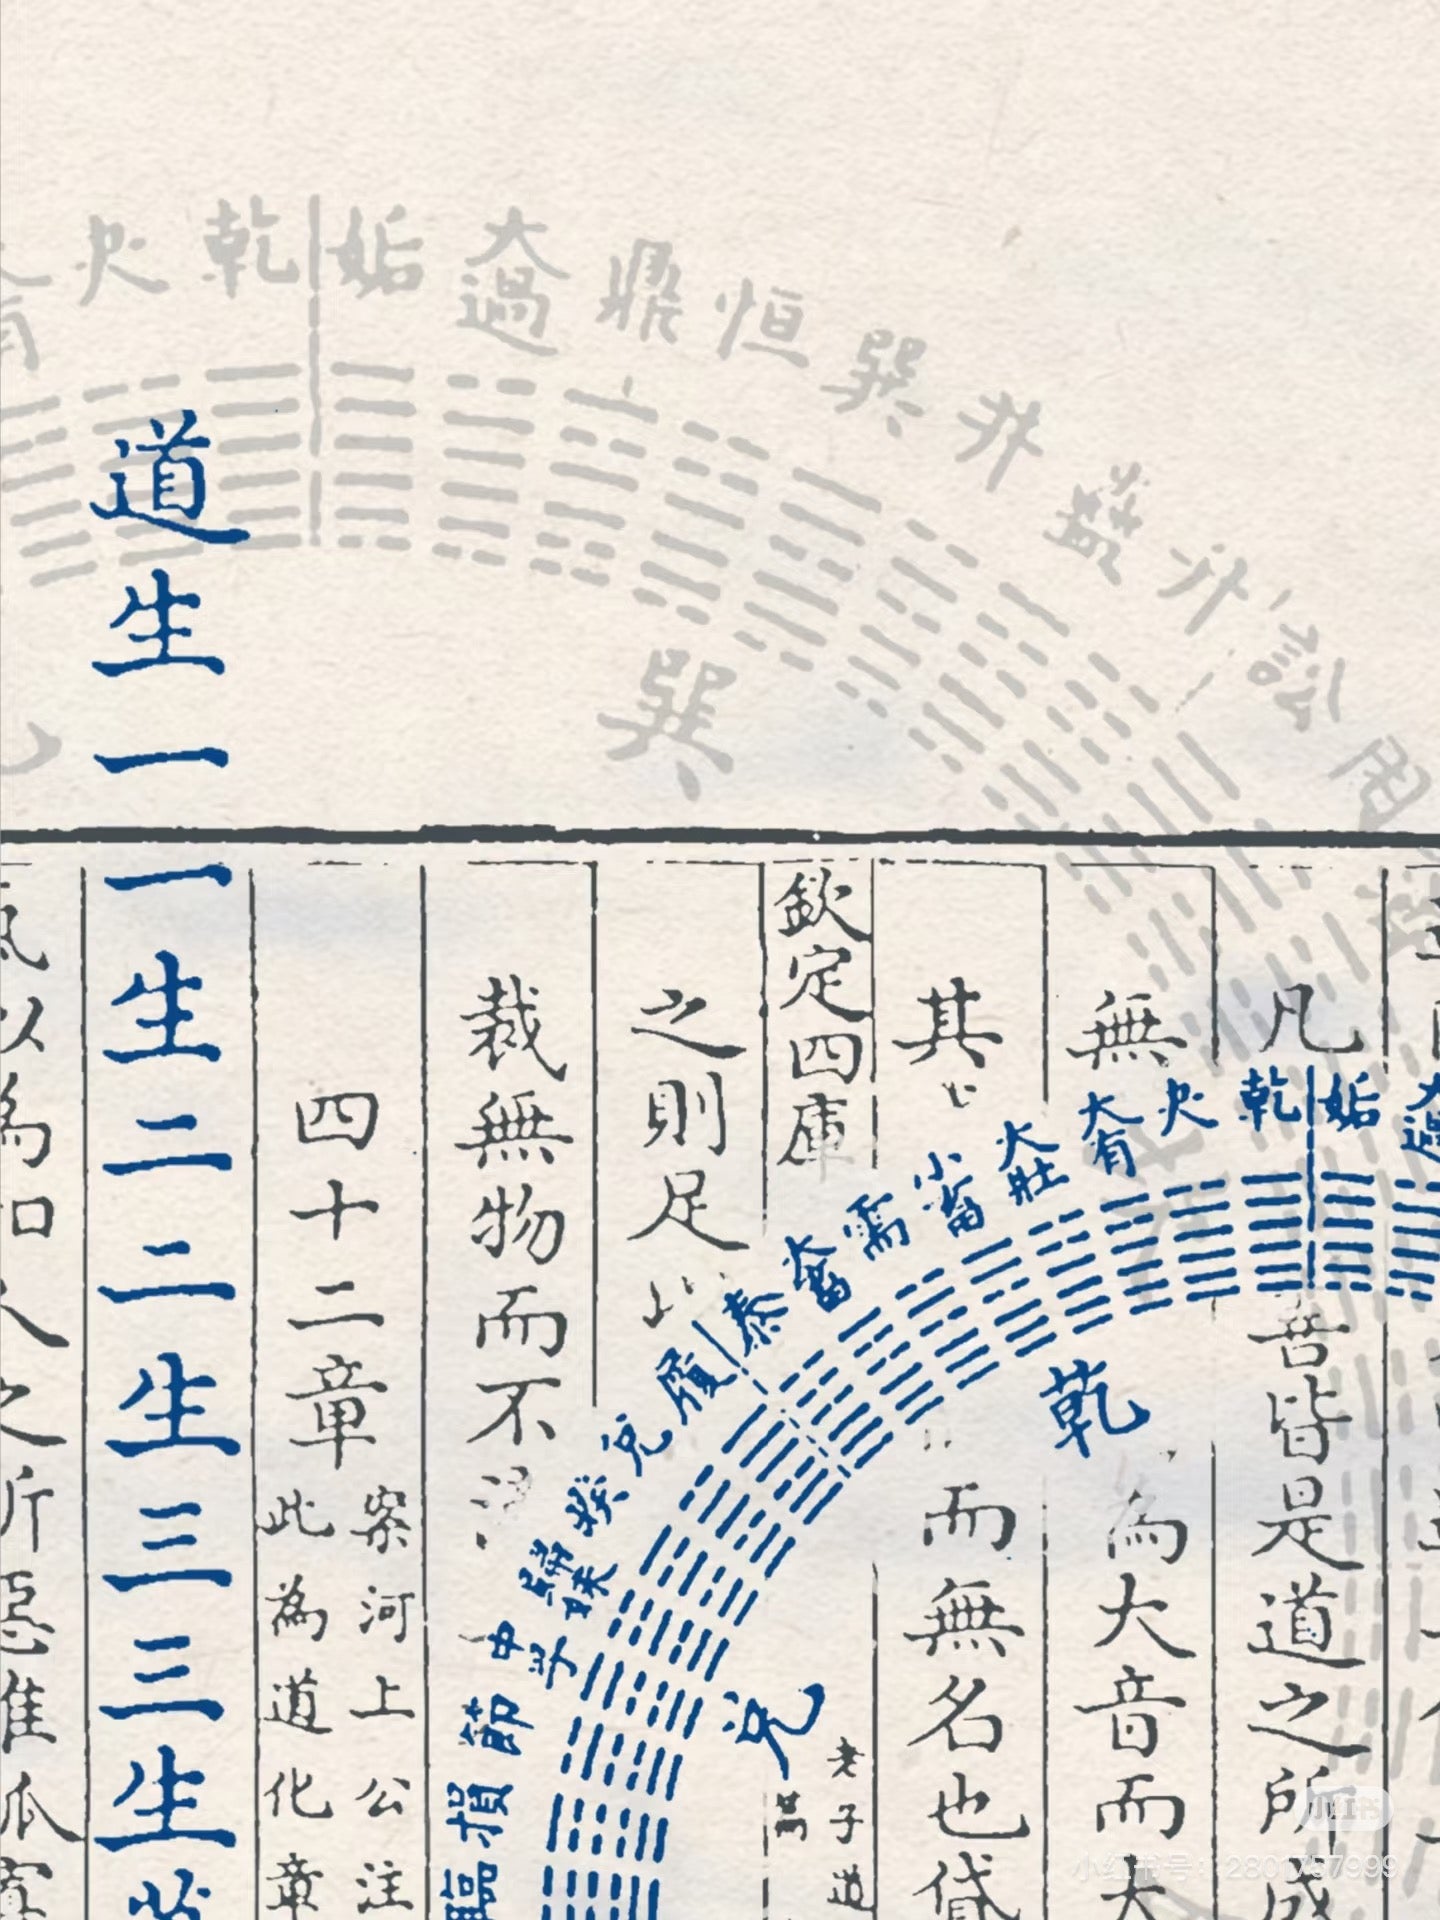 凡
皆是道之所成
無
為大音而大
其
而無名也貸
欽定四庫
老子道
之則足
裁無物而不
四十二章
案河上公注
此為道化章
道生一
一生二
二生三
三生
以為和
之所惡唯孤寡
夬乾姤
大過
鼎恒巽井蠱升訟困
巽
大過
姤
乾
夬
大有
大壯
小畜
需
大畜
泰
履
兌
睽
歸妹
中孚
節
損
臨
乾
兌
小红书
小红书号：2801797999